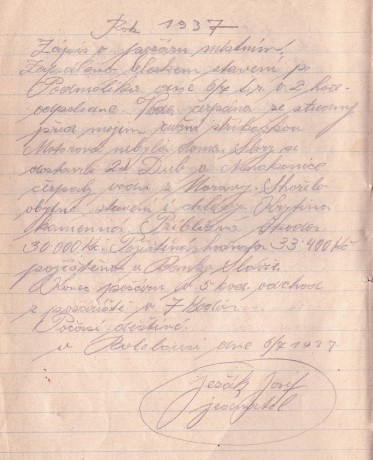 Rok 1937
Zápis o požáru místním.
Zapáleno bleskem stavení p.
Podmolíka dne 6/7 t.r. v 2 hod.
odpoledne. Voda čerpána ze studny
před mojem ruční stříkačkou
Motorová nebyla doma. Sbory se
dostavili 2 Dub a Nenakonice
čerpaly vodu z Moravy. Shořelo
obytné stavení i chlévy. Krytina
kamenná. Přibližná škoda
30.000 Kč. Pojistná 33.400 Kč
pojištěno u Banky Slavie.
Konec požáru v 5 hod. odchod
z požářiště v 7 hodin.
Počasí deštivé.
v dne 6/7 1937.
Ježák Josef
jednatel